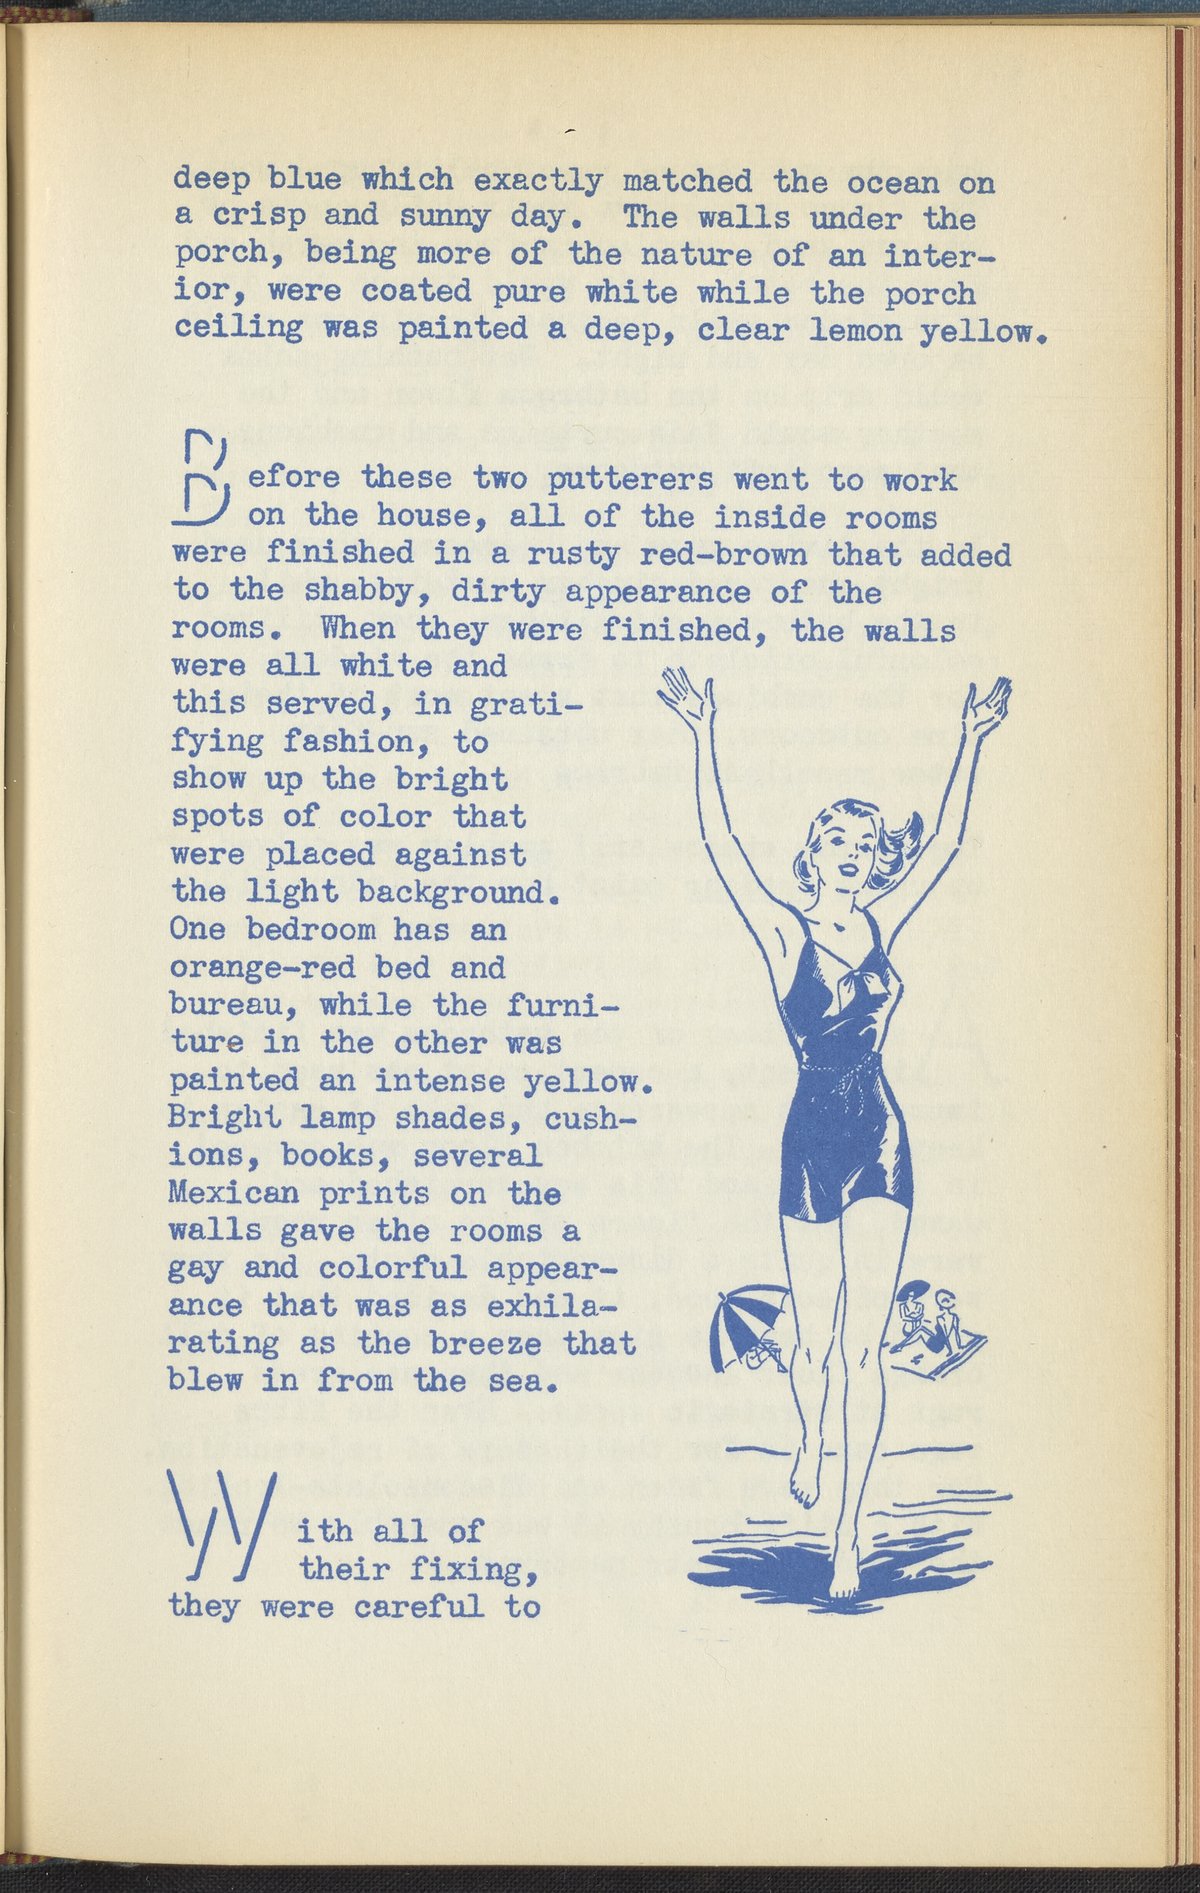 deep blue which exactly matched the ocean on
a crisp and sunny day. The walls under the
porch, being more of the nature of an inter-
ior, were coated pure white while the porch
ceiling was painted a deep, clear lemon yellow.
Before these two putterers went to work
on the house, all of the inside rooms
were finished in a rusty red-brown that added
to the shabby, dirty appearance of the
rooms. When they were finished, the walls
were all white and
this served, in grati-
fying fashion, to
show up the bright
spots of color that
were placed against
the light background.
One bedroom has an
orange-red bed and
bureau, while the furni-
ture in the other was
painted an intense yellow.
Bright lamp shades, cush-
ions, books, several
Mexican prints on the
walls gave the rooms a
gay and colorful appear-
ance that was as exhila-
rating as the breeze that
blew in from the sea.
With all of
their fixing,
they were careful to